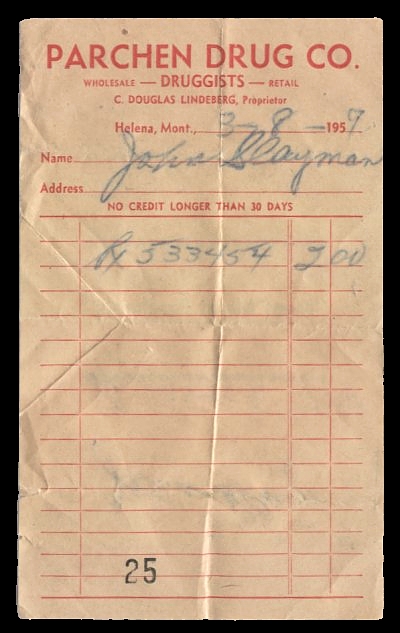 PARCHEN DRUG CO.
WHOLESALE — DRUGGISTS — RETAIL
C. DOUGLAS LINDEBERG, Proprietor
Helena, Mont., 3-8-1957
Name John Slayman
Address
NO CREDIT LONGER THAN 30 DAYS
Rx 533454 2 00
25